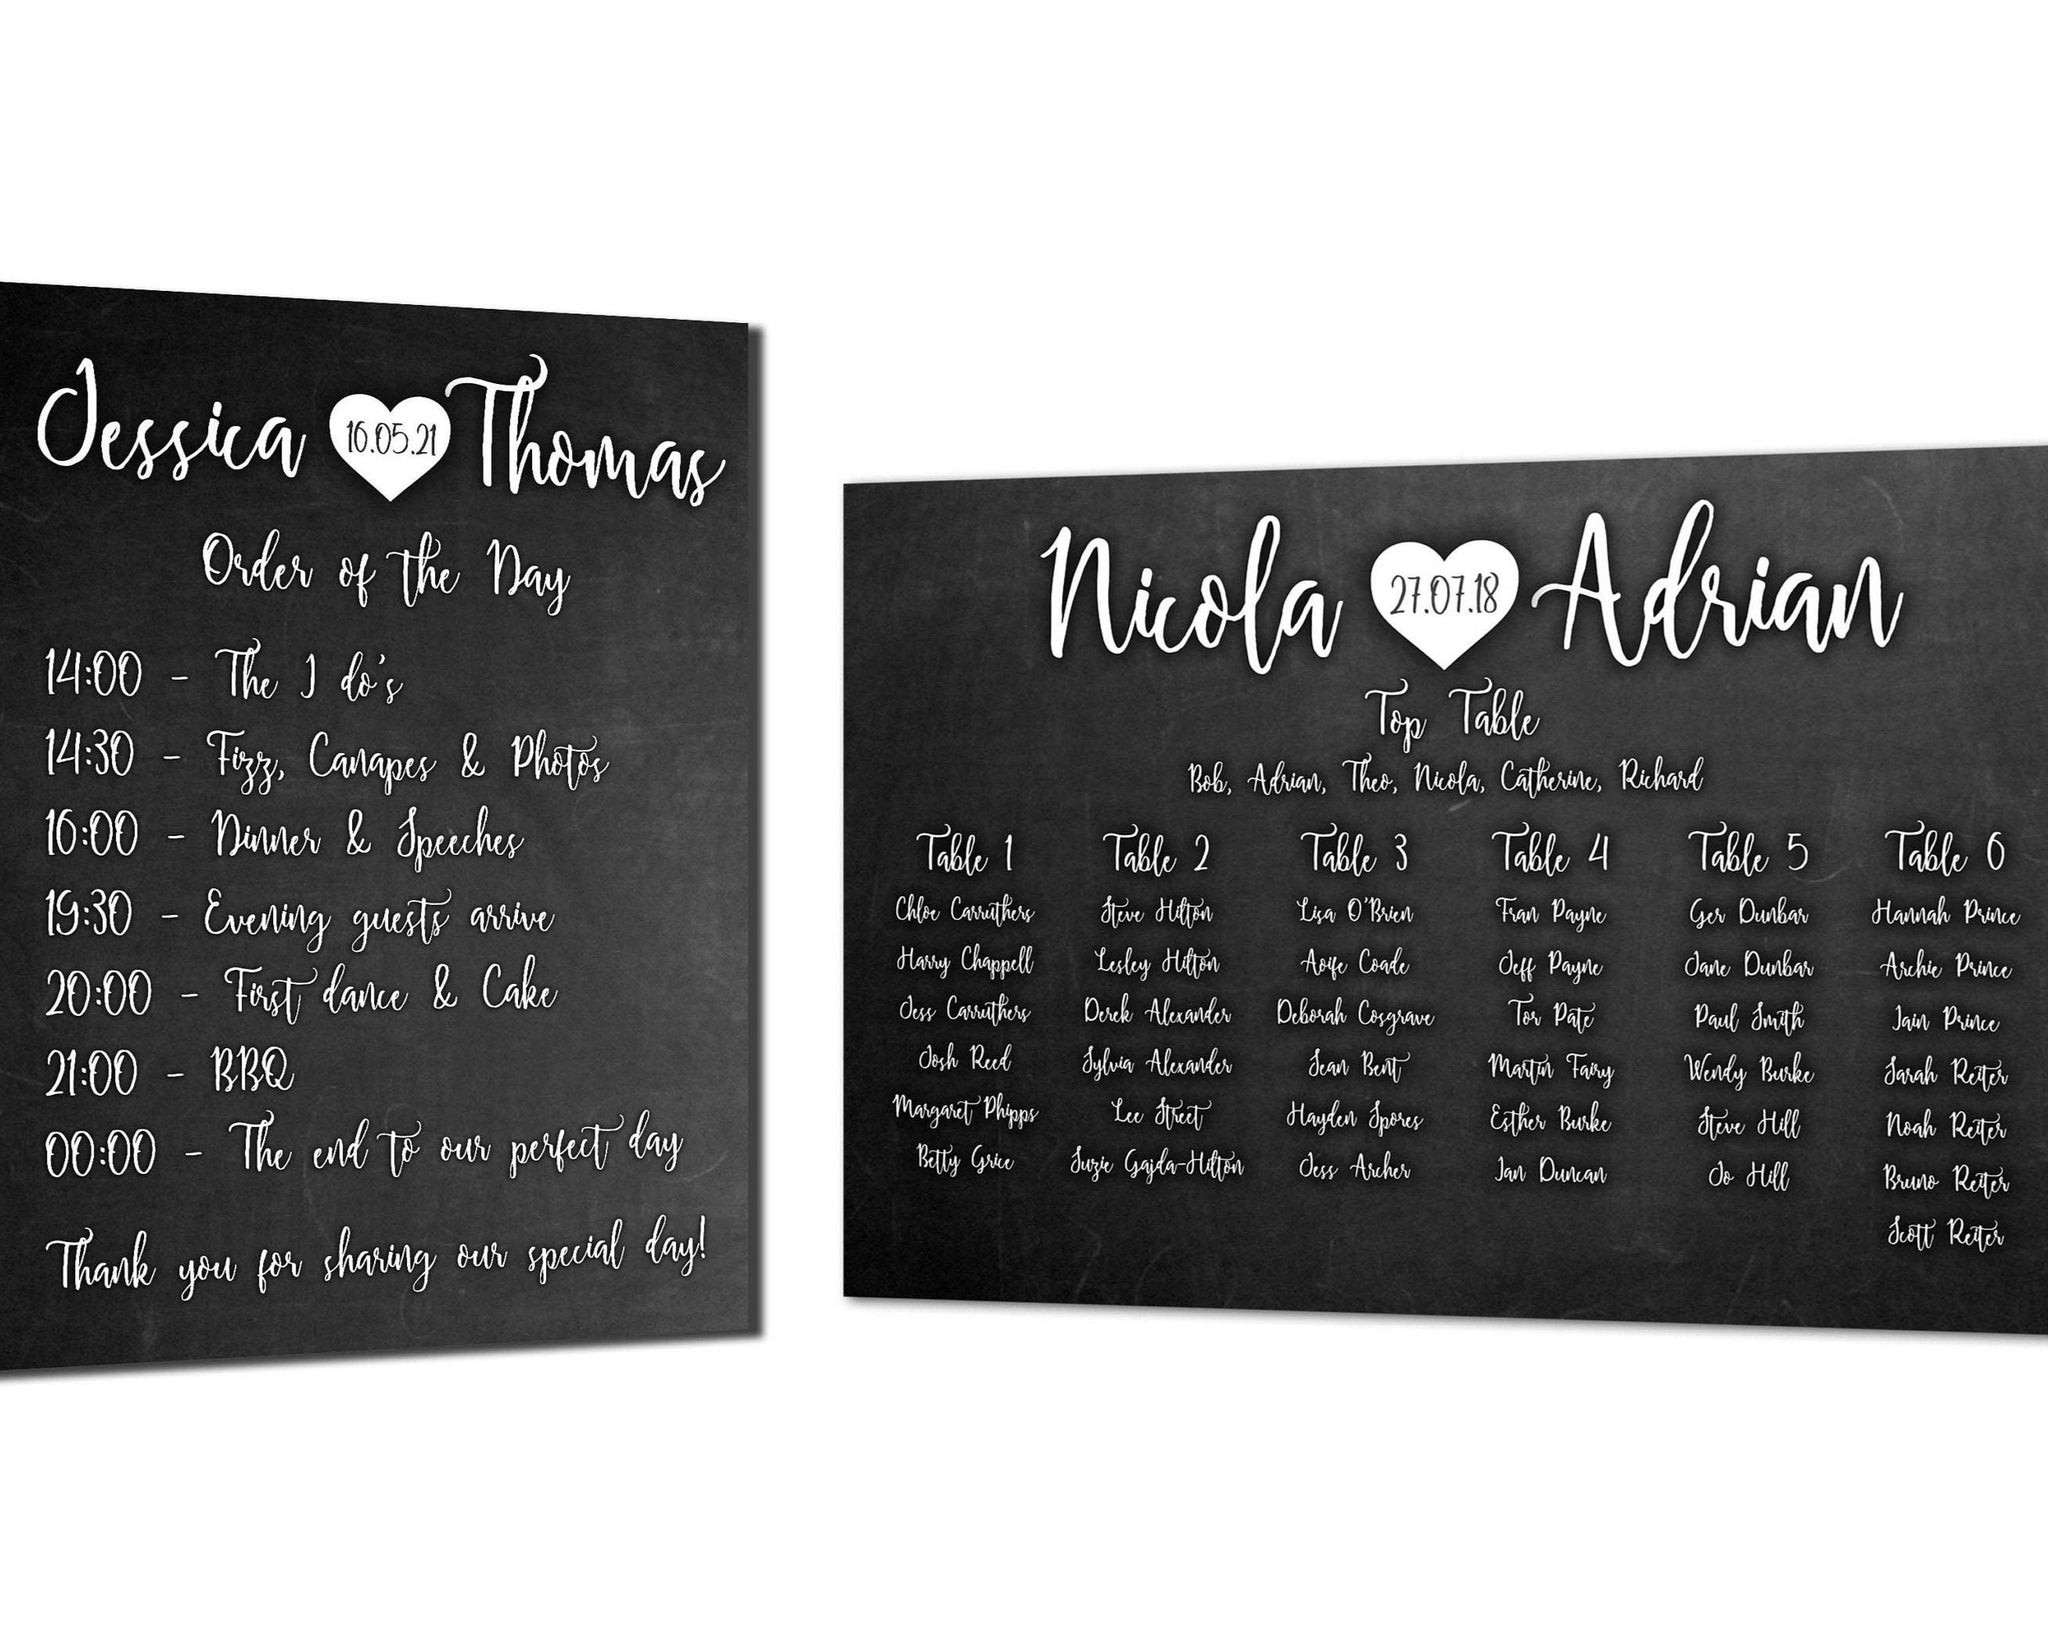 Jessica 16.05.21 Thomas
Order of the Day
14:00 - The I do's
14:30 - Fizz, Canapes & Photos
16:00 - Dinner & Speeches
19:30 - Evening guests arrive
20:00 - First dance & Cake
21:00 - BBQ
00:00 - The end to our perfect day
Thank you for sharing our special day!
Nicola 27.07.18 Adrian
Top Table
Bob, Adrian, Theo, Nicola, Catherine, Richard
Table 1
Chloe Carruthers
Harry Chappell
Jess Carruthers
Josh Reed
Margaret Phipps
Betty Grice
Table 2
Steve Hilton
Lesley Hilton
Derek Alexander
Sylvia Alexander
Lee Street
Suzie Gajda-Hilton
Table 3
Lisa O'Brien
Aoife Coade
Deborah Cosgrave
Sean Bent
Hayden Spores
Jess Archer
Table 4
Fran Payne
Jeff Payne
Tor Pate
Martin Fairy
Esther Burke
Ian Duncan
Table 5
Ger Dunbar
Jane Dunbar
Paul Smith
Wendy Burke
Steve Hill
Jo Hill
Table 6
Hannah Prince
Archie Prince
Iain Prince
Sarah Reiter
Noah Reiter
Bruno Reiter
Scott Reiter